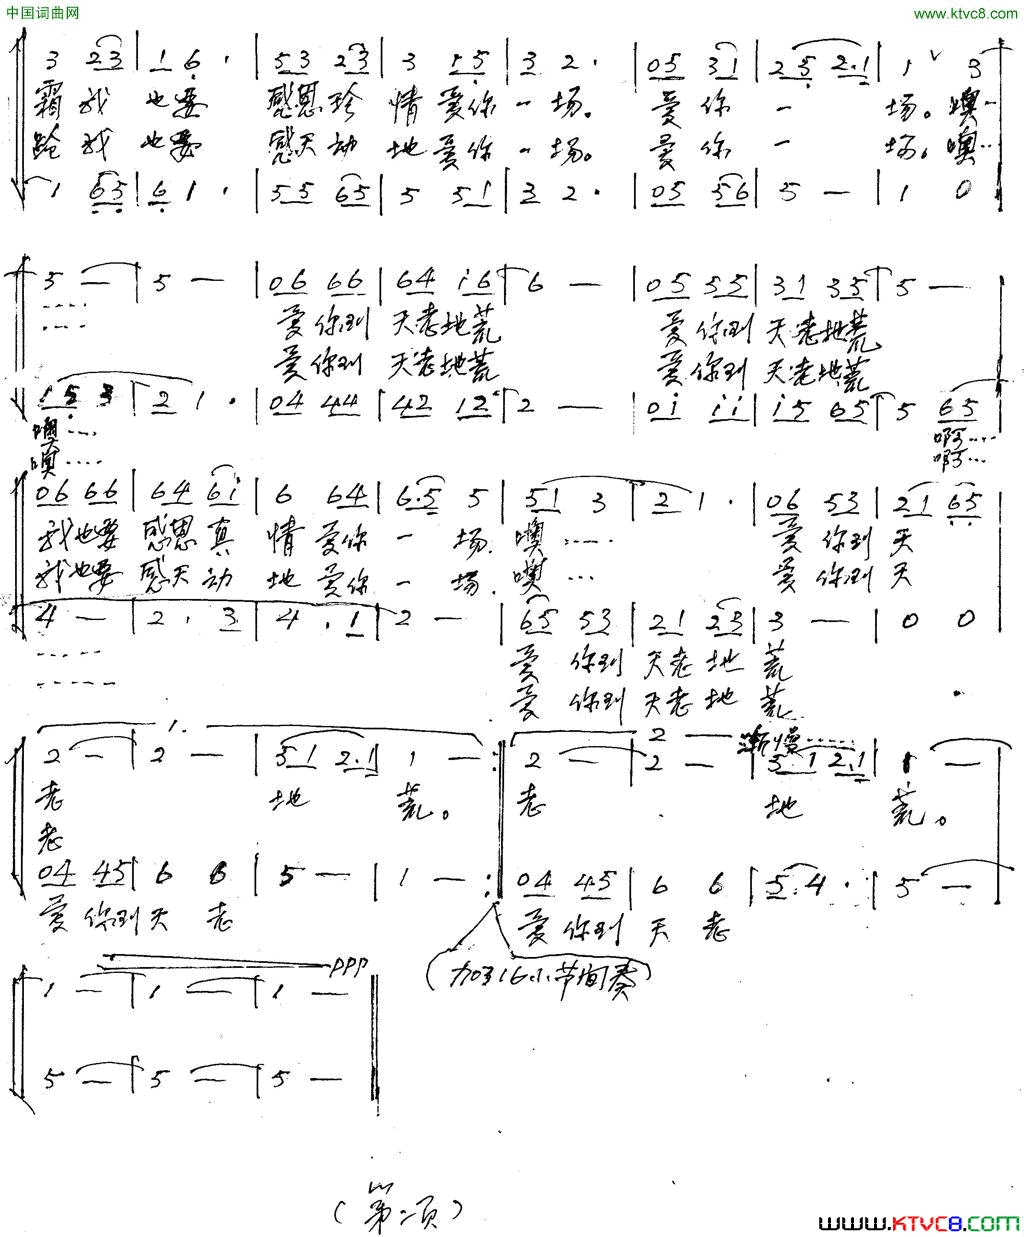 中国词曲网
www.ktvc8.com
3 23 | 1 6 · | 53 23 | 3 1·5 | 3 2 · | 05 31 | 25 2·1 | 1 ∨ 3
霜我 也要 感恩珍 情爱你 一 场。 爱 你 一 场。噢…
我 也要 感天动 地爱你 一 场。 爱 你 一 场。噢…
1 65 | 6 1 · | 55 65 | 5 51 | 3 2 · | 05 56 | 5 — | 1 0
5 — | 5 — | 06 66 | 64 i6 | 6 — | 05 55 | 31 35 | 5 —
…… 爱你到 天老地荒 爱你到 天老地荒
…… 爱你到 天老地荒 爱你到 天老地荒
1 5 3 | 2 1 · | 04 44 | 42 12 | 2 — | 0i ii | i5 65 | 5 65
噢…… 啊……
噢…… 啊…
06 66 | 64 6i | 6 64 | 6·5 5 | 51 3 | 2 1 · | 06 53 | 21 65
我也要 感恩真 情 爱你 一 场. 噢…… 爱 你到 天
我也要 感天动 地 爱你 一 场. 噢… 爱 你到 天
4 — | 2 · 3 | 4 · 1 | 2 — | 65 53 | 21 23 | 3 — | 0 0
…… 爱 你到 天老 地 荒
…… 爱 你到 天老 地 荒
1.
2 — 渐慢……
2 — | 2 — | 31 2·1 | 1 — :‖ 2 — | 2 — | 31 2·1 | 1 —
老 地 荒。 老 地 荒。
老
04 45 | 6 6 | 5 — | 1 — :‖ 04 45 | 6 6 | 5·4 · | 5 —
爱 你到 天 老 爱你到 天 老
(加316小节间奏)
ppp
1 — | 1 — | 1 — ‖
5 — | 5 — | 5 — ‖
(第二页)
www.KTVC8.com